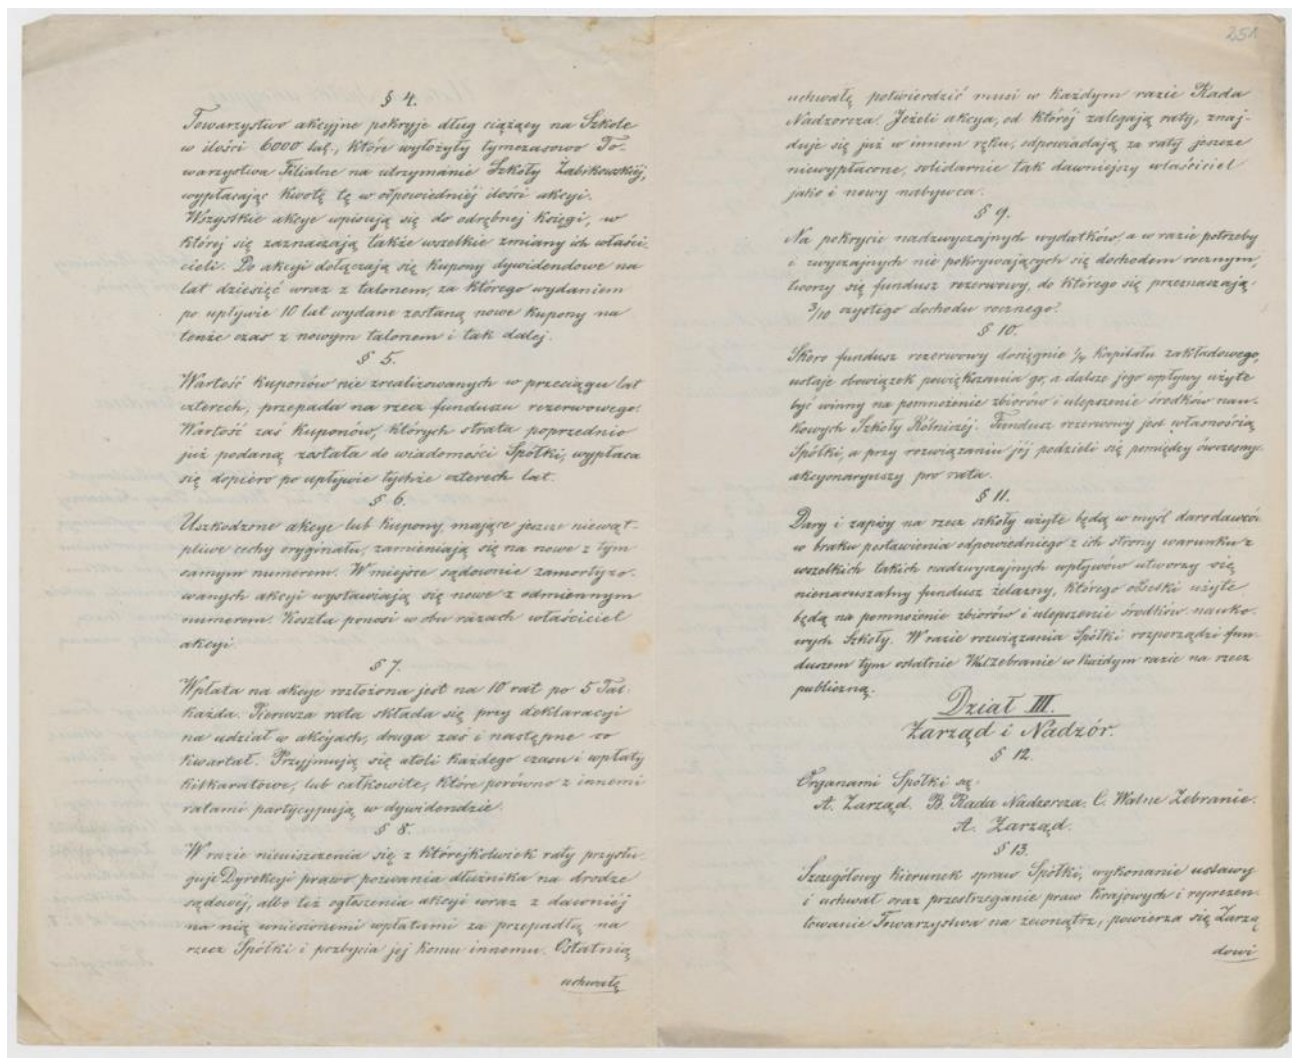 251
§ 4.
Towarzystwo akcyjne pokryje dług ciążący na Szkole
w ilości 6000 tal., które wyłożyły tymczasowo To-
warzystwa Filialne na utrzymanie Szkoły Żabikowskiéj,
wypłacając kwotę tę w odpowiedniéj ilości akcyi.
Wszystkie akcye wpisują się do odrębnej księgi, w
któréj się zaznaczają także wszelkie zmiany ich właści-
cieli. Do akcyi dołączają się kupony dywidendowe na
lat dziesięć wraz z talonem, za którego wydaniem
po upływie 10 lat wydane zostaną nowe kupony na
tenże czas z nowym talonem i tak daléj.
§ 5.
Wartość kuponów nie zrealizowanych w przeciągu lat
czterech, przepada na rzecz funduszu rezerwowego.
Wartość zaś kuponów, których strata poprzednio
już podaną została do wiadomości Spółki, wypłaca
się dopiero po upływie tychże czterech lat.
§ 6.
Uszkodzone akcye lub kupony, mające jeszcze niewąt-
pliwe cechy oryginału, zamieniają się na nowe z tym
samym numerem. W miejsce sądownie zamortyzo-
wanych akcyi wystawiają się nowe z odmiennym
numerem. Koszta ponosi w obu razach właściciel
akcyi.
§ 7.
Wpłata na akcye rozłożona jest na 10 rat po 5 Tal.
każda. Pierwsza rata składa się przy deklaracyi
na udział w akcyach, druga zaś i następne co
kwartał. Przyjmują się atoli każdego czasu i wpłaty
kilkaratowe, lub całkowite, które porówno z innemi
ratami partycypują w dywidendzie.
§ 8.
W razie nieuiszczenia się z którejkolwiek raty przysłu-
guje Dyrekcyi prawo pozwania dłużnika na drodze
sądowéj, albo też ogłoszenia akcyi wraz z dawniéj
na nią wniesionemi wpłatami za przepadłą na
rzecz Spółki i pozbycia jej komu innemu. Ostatnią
uchwałę
uchwałę potwierdzić musi w każdym razie Rada
Nadzorcza. Jeżeli akcya, od któréj zalegają raty, znaj-
duje się już w innem ręku, odpowiadają za raty jeszcze
niewypłacone, solidarnie tak dawniejszy właściciel
jako i nowy nabywca.
§ 9.
Na pokrycie nadzwyczajnych wydatków, a w razie potrzeby
i zwyczajnych nie pokrywających się dochodem rocznym,
tworzy się fundusz rezerwowy, do którego się przeznaczają
3/10 czystego dochodu rocznego.
§ 10.
Skoro fundusz rezerwowy dosięgnie 1/4 kapitału zakładowego,
ustaje obowiązek powiększania go, a dalsze jego wpływy użyte
być winny na pomnożenie zbiorów i ulepszenie środków nau-
kowych Szkoły Rólniczéj. Fundusz rezerwowy jest własnością
Spółki, a przy rozwiązaniu jéj podzieli się pomiędzy ówczesny.
akcyonaryuszy pro rata.
§ 11.
Dary i zapisy na rzecz szkoły użyte będą w myśl darodawców
w braku postawienia odpowiedniego z ich strony warunku z
wszelkich takich nadzwyczajnych wpływów utworzy się
nienaruszalny fundusz żelazny, którego odsetki użyte
będą na pomnożenie zbiorów i ulepszenie środków nauko-
wych Szkoły. W razie rozwiązania Spółki rozporządzi fun-
duszem tym ostatnie Wal. zebranie w każdym razie na rzecz
publiczną.
Dział III.
Zarząd i Nadzór.
§ 12.
Organami Spółki są:
A. Zarząd. B. Rada Nadzorcza. C. Walne Zebranie.
A. Zarząd.
§ 13.
Szczegółowy kierunek spraw Spółki, wykonanie ustawy
i uchwał oraz przestrzeganie praw krajowych i reprezen-
towanie Towarzystwa na zewnątrz, powierza się Zarzą
dowi